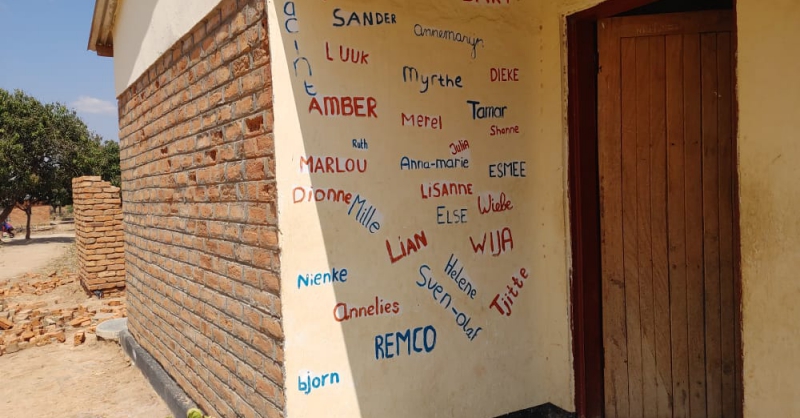 Jacint
SANDER
Annemaryn
LUUK
Myrthe
DIEKE
AMBER
Merel
Tamar
Shanne
Ruth
Julia
MARLOU
Anna-marie
ESMEE
Dionne
Mille
LISANNE
ELSE
Wiebe
LIAN
WIJA
Nienke
Helene
Sven-olaf
Tjitte
Annelies
REMCO
bjorn